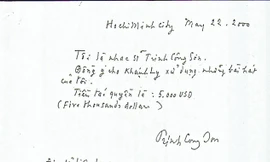 Hochiminh city May 22. 2000
Tôi là nhạc sĩ Trịnh Công Sơn.
Đồng ý cho Khánh Ly sử dụng những bài hát
của tôi.
Tiền tác quyền là : 5.000 USD
(Five thousands dollars)
Trịnh Công Sơn